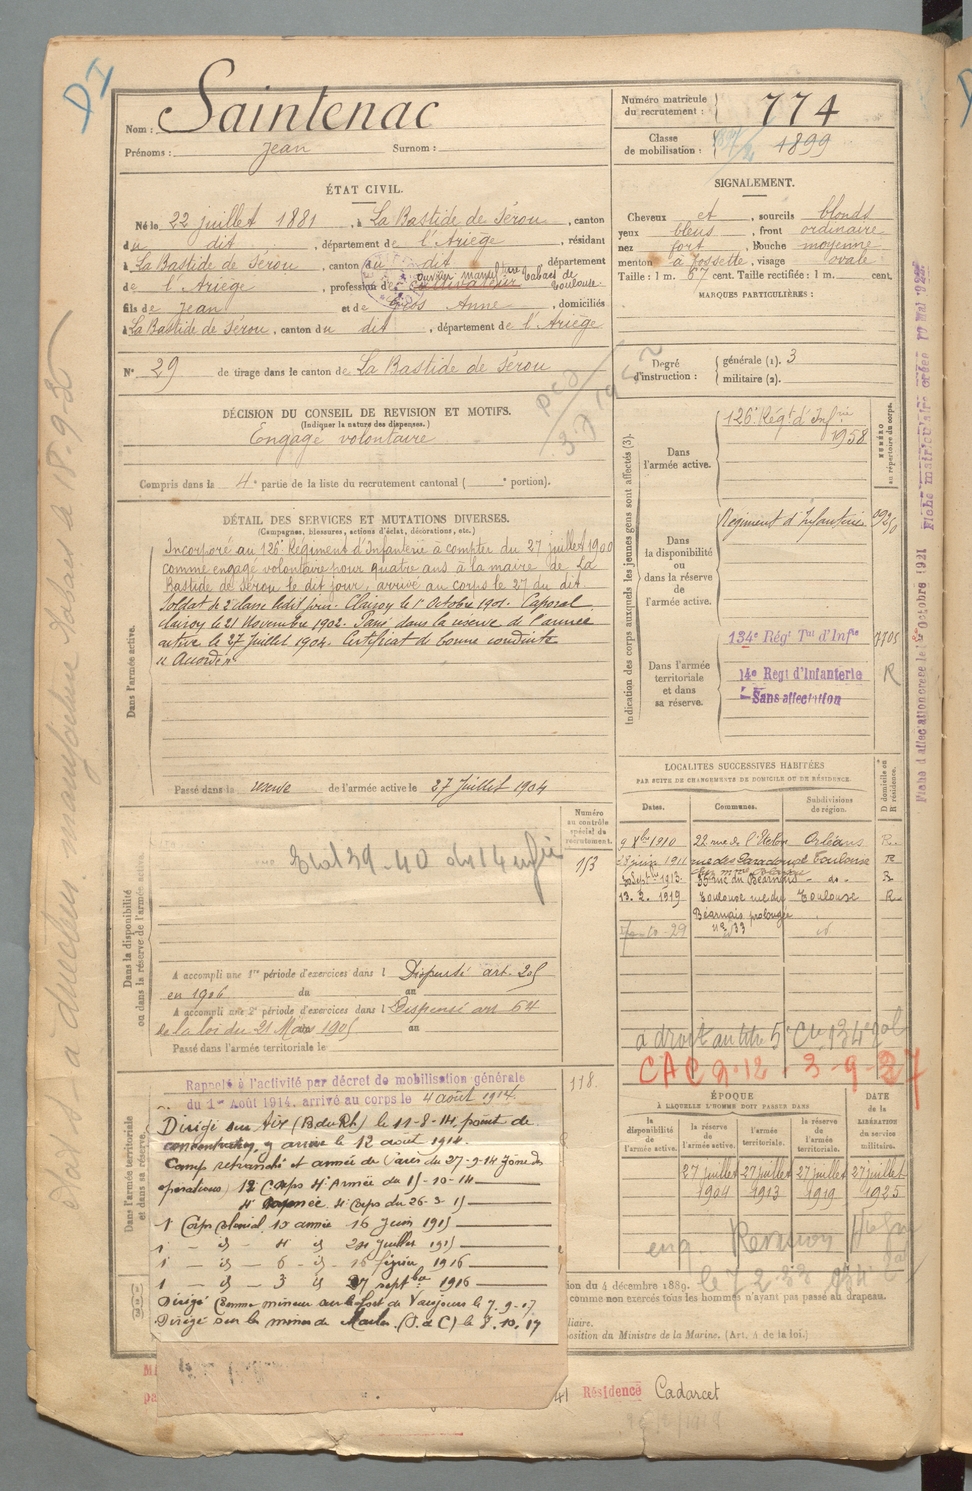 DI
Nom : Saintenac
Prénoms : Jean Surnom :
ÉTAT CIVIL.
Né le 22 juillet 1881, à La Bastide de Sérou, canton
du dit, département de l'Ariège, résidant
à La Bastide de Sérou, canton du dit département
ouvrier manufre tabacs de
de l'Ariège, profession de cultivateur Toulouse
fils de Jean et de Gros Anne, domiciliés
à La Bastide de Sérou, canton du dit, département de l'Ariège
N° 29 de tirage dans le canton de La Bastide de Sérou
DÉCISION DU CONSEIL DE REVISION ET MOTIFS.
(Indiquer la nature des dispenses.)
Engagé volontaire
Compris dans la 4e partie de la liste du recrutement cantonal ( e portion).
DÉTAIL DES SERVICES ET MUTATIONS DIVERSES.
(Campagnes, blessures, actions d'éclat, décorations, etc.)
Dans l'armée active.
Incorporé au 126e Régiment d'Infanterie à compter du 27 juillet 1900
comme engagé volontaire pour quatre ans à la mairie de La
Bastide de Sérou le dit jour, arrivé au corps le 27 du dit.
Soldat de 2e classe ledit jour. Clairon le 1er Octobre 1901. Caporal
clairon le 21 Novembre 1902. Passé dans la réserve de l'armée
active le 27 juillet 1904. Certificat de bonne conduite
"Accordé"
Passé dans la réserve de l'armée active le 27 Juillet 1904
Numéro au contrôle spécial du recrutement.
Dans la disponibilité
ou dans la réserve de l'armée active
Etat 39-40 du 14 enfie
1/3
A accompli une 1re période d'exercices dans l Dispensé art. 205
en 1906 du au
A accompli une 2e période d'exercices dans l Dispensé art 54
de la loi du 21 Mars 1905 au
Passé dans l'armée territoriale le
Dans l'armée territoriale
et dans sa réserve.
Rappelé à l'activité par décret de mobilisation générale
du 1er Août 1914. arrivé au corps le 4 août 1914.
118.
Dirigé sur Aix (B. du Rh.) le 11-8-14, point de
concentration y arrive le 12 août 1914.
Camp retranché et armée de Paris du 27-9-14 Zone des
opérations) 12 Corps 4e Armée du 15-10-14
4e Armée 4e Corps du 26-3-15
1 Corps Colonial 10 armée 16 Juin 1915
1 - id - 4 id 24 Juillet 1915
1 - id - 6 - id - 16 février 1916
1 - id - 3 id 27 septbre 1916
Dirigé Comme mineur sur le fort de Vaujours le 7.9.17
Dirigé sur les mines de Marles (P. de C) le 8.10.17
Numéro matricule
du recrutement : 774
Classe
de mobilisation : 1899
SIGNALEMENT.
Cheveux et, sourcils blonds
yeux bleus, front ordinaire
nez fort, bouche moyenne
menton à fossette, visage ovale
Taille : 1 m. 67 cent. Taille rectifiée : 1 m. cent.
MARQUES PARTICULIÈRES :
Degré d'instruction : générale (1). 3
militaire (2).
Indication des corps auxquels les jeunes gens sont affectés (3).
NUMÉRO au répertoire du corps.
Dans
l'armée active.
126e Régt d'Infrie
1958
Dans
la disponibilité
ou dans la réserve
de
l'armée active.
Régiment d'Infanterie
Dans l'armée
territoriale
et dans
sa réserve.
134e Régt Tal d'Infie
R
14e Regt d'Infanterie
Sans affectation
LOCALITÉS SUCCESSIVES HABITÉES
PAR SUITE DE CHANGEMENTS DE DOMICILE OU DE RÉSIDENCE.
Dates. Communes. Subdivisions de région. D domicile ou R résidence.
9 Xbre 1910 22 rue de l'Etelon Orléans R
rue des Paradoux Toulouse R
35 rue du Béarnais - do - R
13. 2. 1919 Toulouse rue du Toulouse R
Béarnais prolongée
a droit au titre 5
CAC 9.12 3-9-27
ÉPOQUE
À LAQUELLE L'HOMME DOIT PASSER DANS
DATE de la LIBÉRATION du service militaire.
la disponibilité de l'armée active. la réserve de l'armée active. l'armée territoriale. la réserve de l'armée territoriale.
27 juillet 27 juillet 27 juillet 27 juillet
1904 1913 1919 1925
ion du 4 décembre 1889.
comme non exercés tous les hommes n'ayant pas passé au drapeau.
liaire.
position du Ministre de la Marine. (Art. 4 de la loi.)
Résidence Cadarcet
Fiche d'affectation créée le 1er Octobre 1921 Fiche matriculaire créée 17 Mai 1922